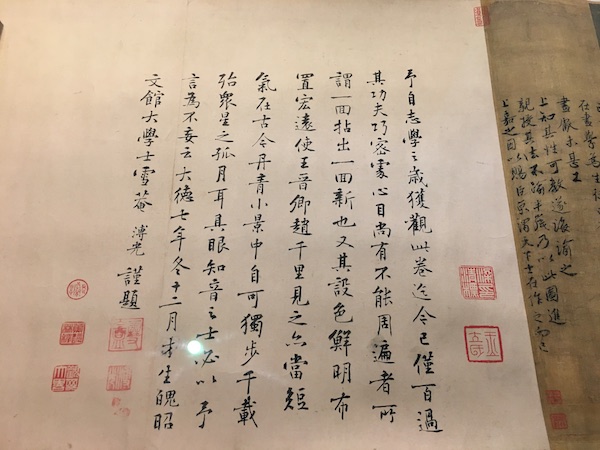 在畫學為生徒
畫獻未甚工
上知其性可教遂誨諭之
親授其法不踰半歲乃以此圖進
上嘉之因以賜臣京謂天下士在作之而已
予自志學之歲獲觀此卷迄今已僅百過
其功夫巧密處心目尚有不能周遍者所
謂一回拈出一回新也又其設色鮮明布
置宏遠使王晉卿趙千里見之亦當短
氣在古今丹青小景中自可獨步千載
殆眾星之孤月耳具眼知音之士必以予
言為不妄云大德七年冬十二月才生魄昭
文館大學士雪菴溥光謹題